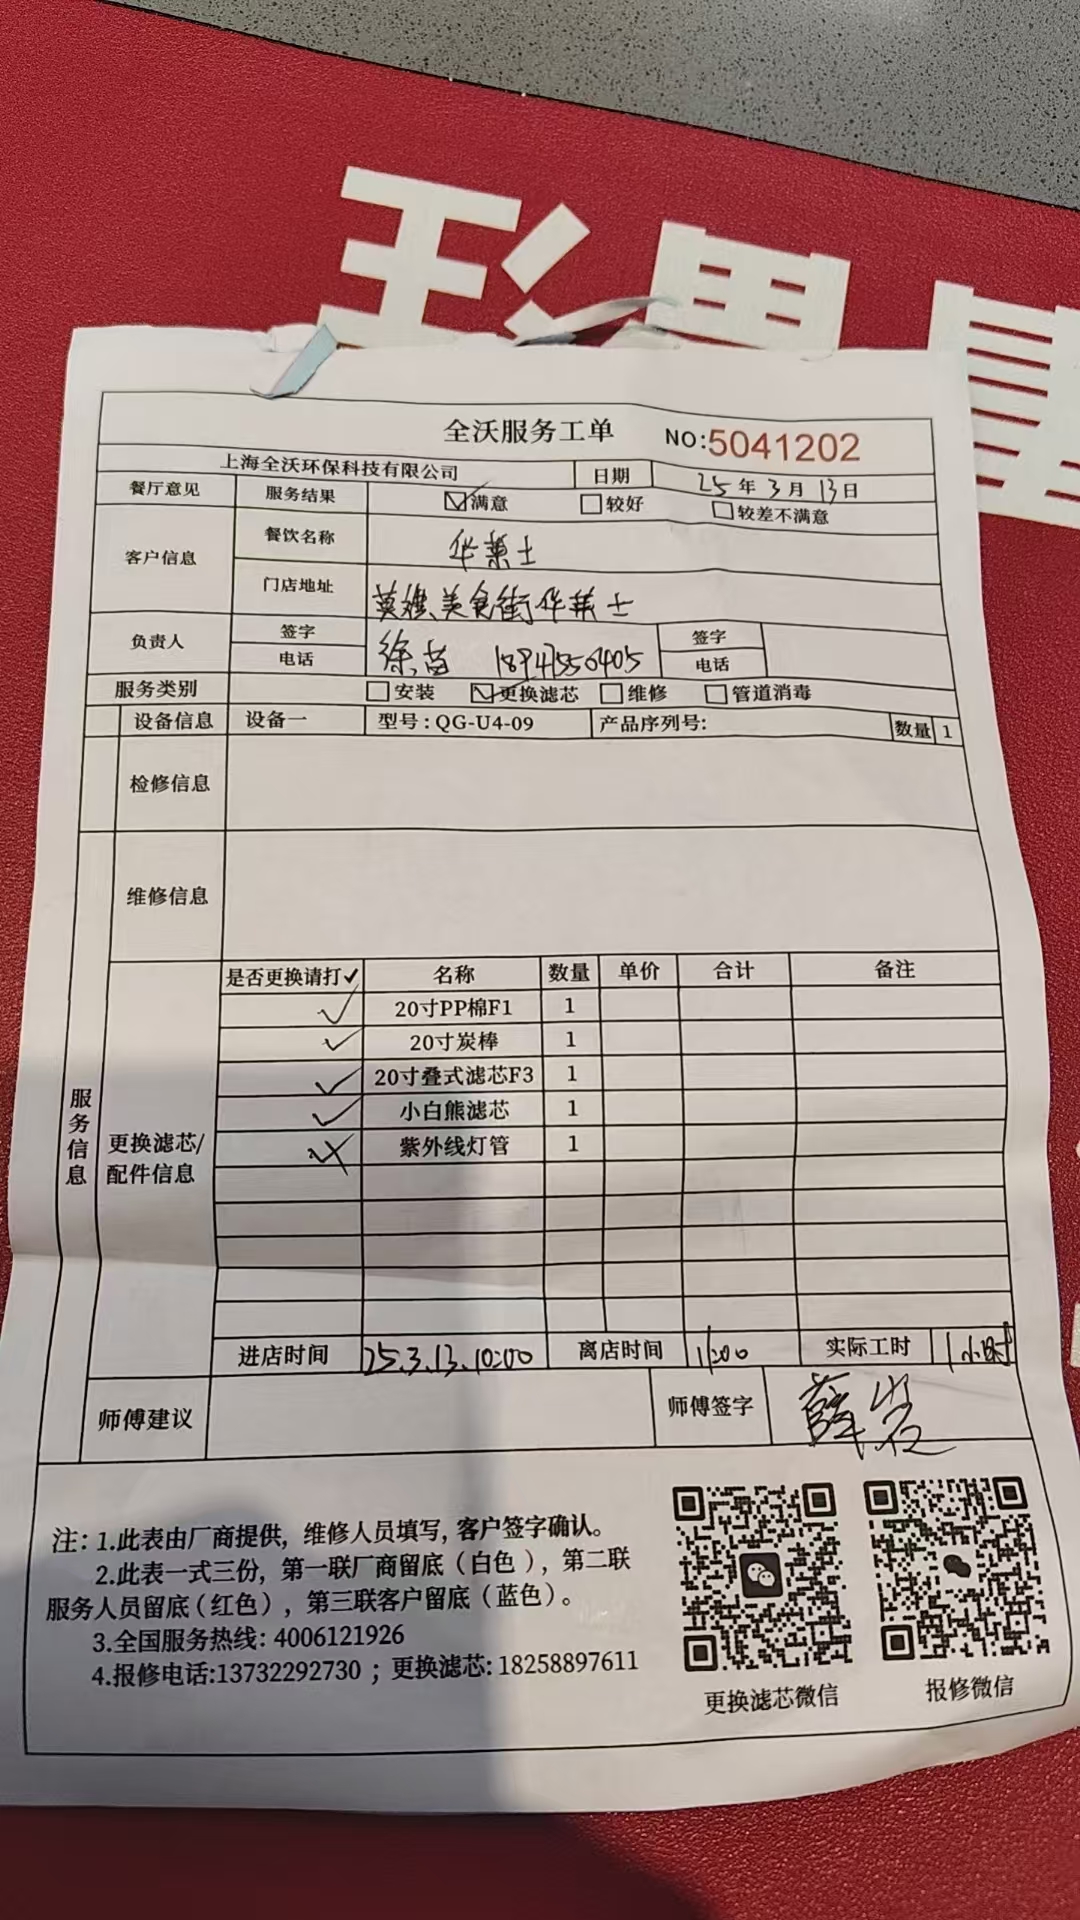 全沃服务工单 NO:5041202
上海全沃环保科技有限公司 日期 25年3月13日
餐厅意见 服务结果 ☑满意 □较好 □较差不满意
客户信息 餐饮名称 华莱士
门店地址 美食街华莱士
负责人 签字 徐苗 签字
电话 电话
服务类别 □安装 ☑更换滤芯 □维修 □管道消毒
设备信息 设备一 型号:QG-U4-09 产品序列号: 数量 1
检修信息
维修信息
服务信息
更换滤芯/配件信息
是否更换请打✓ 名称 数量 单价 合计 备注
✓ 20寸PP棉F1 1
✓ 20寸炭棒 1
✓ 20寸叠式滤芯F3 1
✓ 小白熊滤芯 1
✗ 紫外线灯管 1
进店时间 25.3.13.10:00 离店时间 11:00 实际工时 1小时
师傅建议 师傅签字 薛岩
注:1.此表由厂商提供,维修人员填写,客户签字确认。
2.此表一式三份,第一联厂商留底(白色),第二联
服务人员留底(红色),第三联客户留底(蓝色)。
3.全国服务热线:4006121926
4.报修电话:13732292730;更换滤芯:18258897611
更换滤芯微信 报修微信